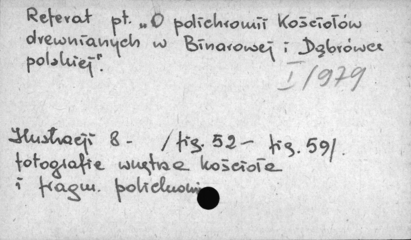 Referat pt. „O polichromii Kościołów
drewnianych w Binarowej i Dąbrówce
polskiej".
I/1979
Ilustracji 8 - /fig. 52 - fig. 59/.
fotografie wnętrza kościoła
i fragm. polichromii